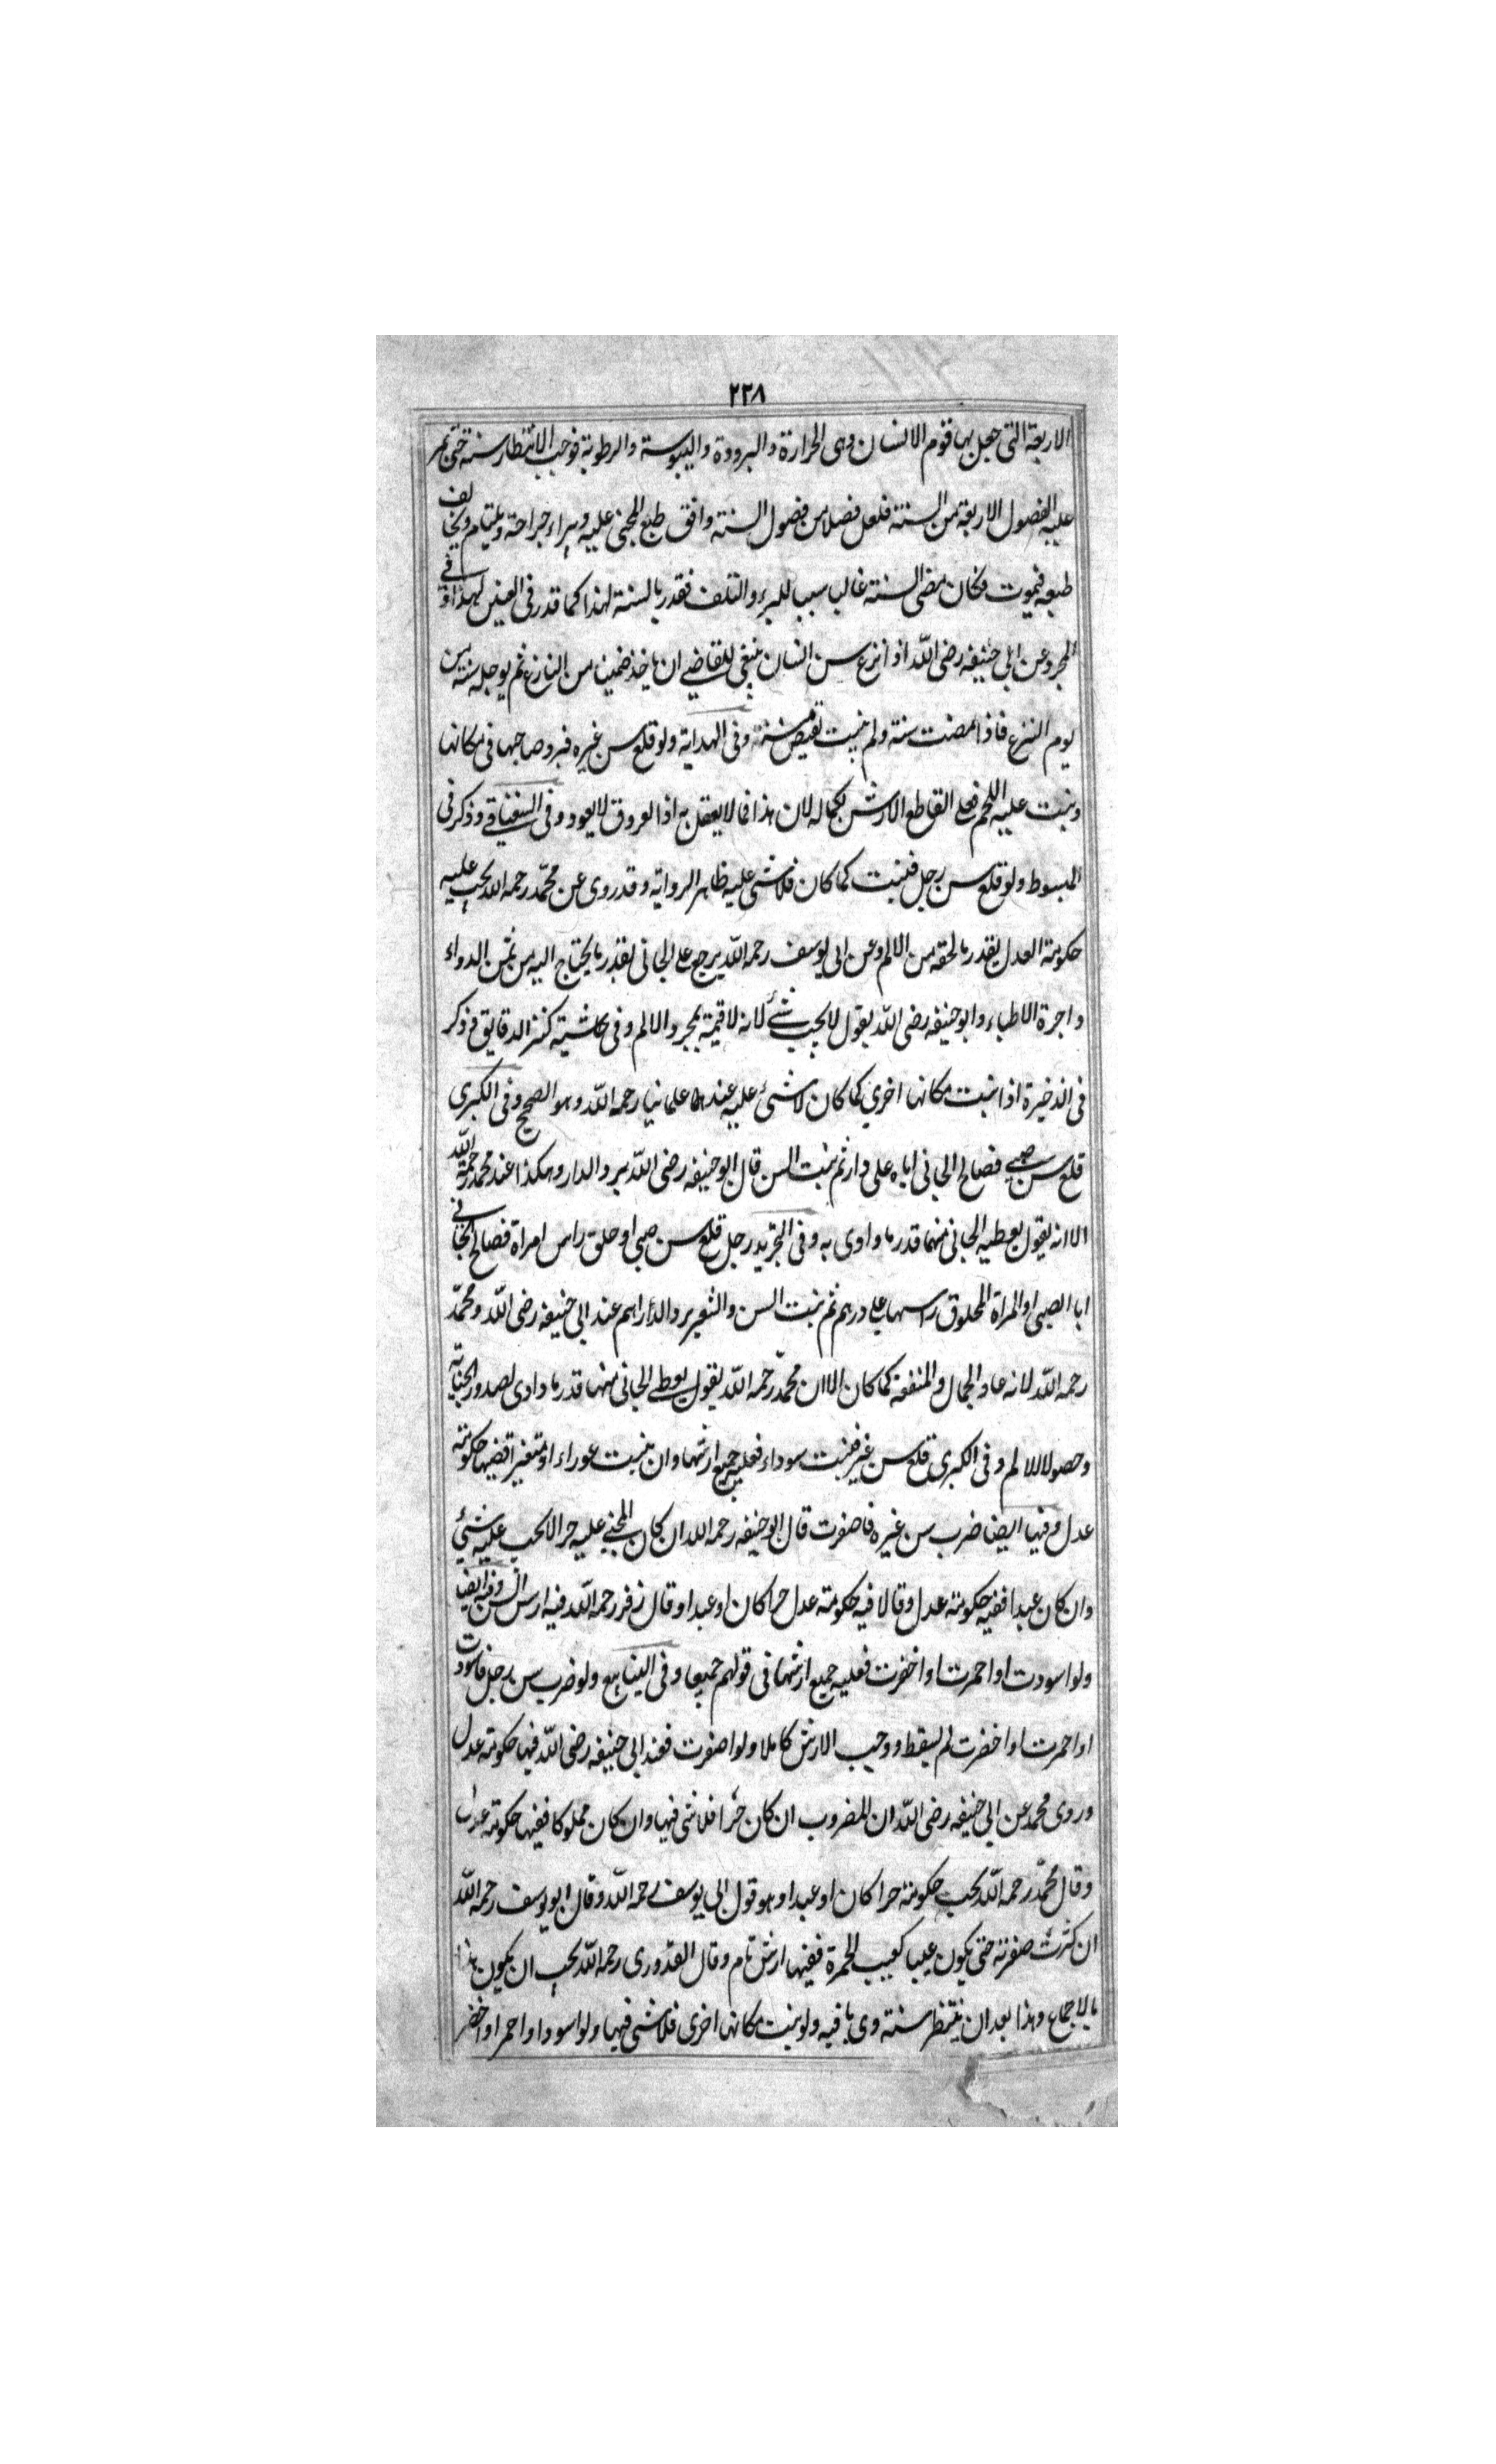 ٢٣٨
الاربعة التى جعل بها قوم الانسان وهى الحرارة والبرودة واليبوسة والرطوبة فوجب الانتظار سنة حتى يمر
عليه الفصول الاربعة من السنة فلعل فصلا من فصول السنة وافق طبع المجنى عليه وبراء جراحة ويلتيام ويخالف
طبعه فيموت فكان مضى السنة غالب سببا للبرء والتلف فقدر بالسنة لهذا كما قدر فى العنين لهذا وفى
المجرد عن ابى حنيفه رضى الله اذ انزع سن انسان ينبغى للقاضى ان ياخذ ضمينا من النازع ثم يوجله سنة من
يوم النزع فاذا مضت سنة ولم ينبت تقيض سنه وفى الهداية ولو قلع سن غيره فبرد صاحبها فى مكانها
وينبت عليه اللحم فعلى القاطع الارش بكماله لان هذا فما لا يعقل به اذ العروق لا يعود وفى السغناقى وذكر فى
المبسوط ولو قلع سن رجل فنبت كما كان فلا شى عليه ظاهر الرواية وقد روى عن محمد رحمه الله يجب عليه
حكومة العدل بقدر ما لحقه من الالم وعن ابى يوسف رحمه الله يرجع على الجانى بقدر ما يحتاج اليه من ثمن الدواء
واجرة الاطباء وابو حنيفه رضى الله يقول لا يجب شئ لانه لا قيمة بمجرد الالم وفى حاشية كنز الدقايق فذكر
فى الذخيرة اذا نبت مكانها اخرى كما كان لا شئ عليه عند علمائنا رحمه الله وهو الصحيح وفى الكبرى
قلع سن صبى فصالح الجانى اباه على دار ثم نبت السن قال ابو حنيفه رضى الله يرد الدار وهكذا عند محمد رحمة الله
الا انه يقول يعطيه الجانى منهما قدر ما داوى به وفى التجريد رجل قلع سن صبى او حلق راس امراة فصالح الجانى
ابا الصبى او المراة المحلوق راسها على درهم ثم نبت السن والشعر يرد الدراهم عند ابى حنيفه رضى الله ومحمد
رحمه الله لانه عاد الجمال والمنفعة كما كان الا ان محمد رحمه الله يقول يعطى الجانى منها قدر ما داوى لصدور الجناية
وحصولا للالم وفى الكبرى قلع سن غير فنبت سوداء فعليه جميع ارشها وان ينبت عوراء او متغير اقضيها حكومة
عدل وفيها ايضا ضرب سن غيره فاصفرت قال ابو حنيفه رحمه الله ان كان المجنى عليه حرا لا يجب عليه شئ
وان كان عبدا ففيه حكومة عدل وقالا فيه حكومة عدل حرا كان او عبدا وقال زفر رحمه الله فيه ارش السن وفيه ايضا
ولو اسودت او احمرت او اخضرت فعليه جميع ارشها فى قولهم جميعا وفى الينابيع ولو ضرب سن رجل فاسودت
او احمرت او اخضرت لم يسقط ووجب الارش كاملا ولو اصفرت فعند ابى حنيفه رضى الله فيها حكومة عدل
وروى محمد عن ابى حنيفه رضى الله ان المضروب ان كان حرا فلا شى فيها وان كان مملوكا ففيها حكومة عدل
وقال محمد رحمه الله يجب حكومة حرا كان او عبدا وهو قول ابى يوسف رحمه الله وقال ابو يوسف رحمه الله
ان كثرت صفرته حتى يكون عيبا كعيب الحمرة ففيها ارش تام وقال القدورى رحمه الله يجب ان يكون هذا
بالاجماع وهذا بعد ان ينتظر سنة وى بافيه ولو ينبت مكانها اخرى فلا شى فيها ولو اسود او احمر او اخضر